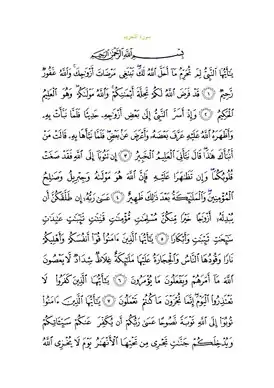 سورة التحريم
بِسْمِ ٱللَّهِ ٱلرَّحْمَٰنِ ٱلرَّحِيمِ
يَٰٓأَيُّهَا ٱلنَّبِىُّ لِمَ تُحَرِّمُ مَآ أَحَلَّ ٱللَّهُ لَكَ تَبْتَغِى مَرْضَاتَ أَزْوَٰجِكَ وَٱللَّهُ غَفُورٌ
رَّحِيمٌ ١ قَدْ فَرَضَ ٱللَّهُ لَكُمْ تَحِلَّةَ أَيْمَٰنِكُمْ وَٱللَّهُ مَوْلَىٰكُمْ وَهُوَ ٱلْعَلِيمُ
ٱلْحَكِيمُ ٢ وَإِذْ أَسَرَّ ٱلنَّبِىُّ إِلَىٰ بَعْضِ أَزْوَٰجِهِۦ حَدِيثًا فَلَمَّا نَبَّأَتْ بِهِۦ
وَأَظْهَرَهُ ٱللَّهُ عَلَيْهِ عَرَّفَ بَعْضَهُۥ وَأَعْرَضَ عَنۢ بَعْضٍ فَلَمَّا نَبَّأَهَا بِهِۦ قَالَتْ مَنْ
أَنۢبَأَكَ هَٰذَا قَالَ نَبَّأَنِىَ ٱلْعَلِيمُ ٱلْخَبِيرُ ٣ إِن تَتُوبَآ إِلَى ٱللَّهِ فَقَدْ صَغَتْ
قُلُوبُكُمَا وَإِن تَظَٰهَرَا عَلَيْهِ فَإِنَّ ٱللَّهَ هُوَ مَوْلَىٰهُ وَجِبْرِيلُ وَصَٰلِحُ
ٱلْمُؤْمِنِينَ وَٱلْمَلَٰٓئِكَةُ بَعْدَ ذَٰلِكَ ظَهِيرٌ ٤ عَسَىٰ رَبُّهُۥٓ إِن طَلَّقَكُنَّ أَن
يُبْدِلَهُۥٓ أَزْوَٰجًا خَيْرًا مِّنكُنَّ مُسْلِمَٰتٍ مُّؤْمِنَٰتٍ قَٰنِتَٰتٍ تَٰٓئِبَٰتٍ عَٰبِدَٰتٍ
سَٰٓئِحَٰتٍ ثَيِّبَٰتٍ وَأَبْكَارًا ٥ يَٰٓأَيُّهَا ٱلَّذِينَ ءَامَنُوا۟ قُوٓا۟ أَنفُسَكُمْ وَأَهْلِيكُمْ
نَارًا وَقُودُهَا ٱلنَّاسُ وَٱلْحِجَارَةُ عَلَيْهَا مَلَٰٓئِكَةٌ غِلَاظٌ شِدَادٌ لَّا يَعْصُونَ
ٱللَّهَ مَآ أَمَرَهُمْ وَيَفْعَلُونَ مَا يُؤْمَرُونَ ٦ يَٰٓأَيُّهَا ٱلَّذِينَ كَفَرُوا۟ لَا
تَعْتَذِرُوا۟ ٱلْيَوْمَ إِنَّمَا تُجْزَوْنَ مَا كُنتُمْ تَعْمَلُونَ ٧ يَٰٓأَيُّهَا ٱلَّذِينَ ءَامَنُوا۟
تُوبُوٓا۟ إِلَى ٱللَّهِ تَوْبَةً نَّصُوحًا عَسَىٰ رَبُّكُمْ أَن يُكَفِّرَ عَنكُمْ سَيِّـَٔاتِكُمْ
وَيُدْخِلَكُمْ جَنَّٰتٍ تَجْرِى مِن تَحْتِهَا ٱلْأَنْهَٰرُ يَوْمَ لَا يُخْزِى ٱللَّهُ